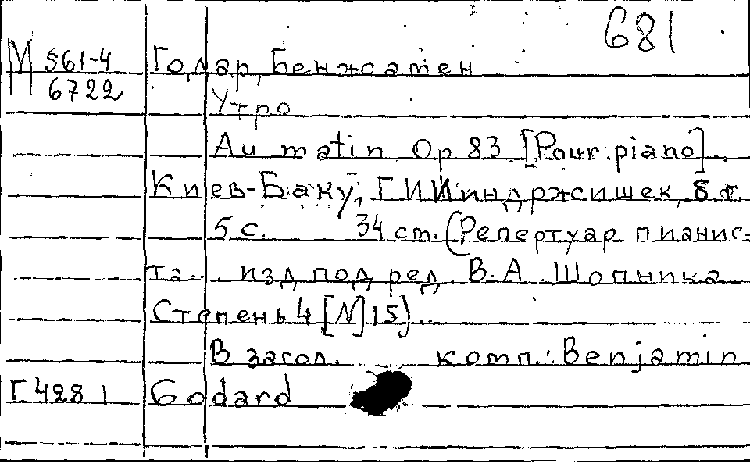 681
М 561-4 Годар, Бенжамен
6722
Утро
Au matin Op 83 [Pour piano].
Киев-Баку, Г.И Индржишек, б.г.
5 с. 34 см. (Репертуар пианис-
та. изд под ред В.А. Шопника
Степень 4 [N] 15)..
В загол. комп.: Benjamin
Г 428 1 Godard